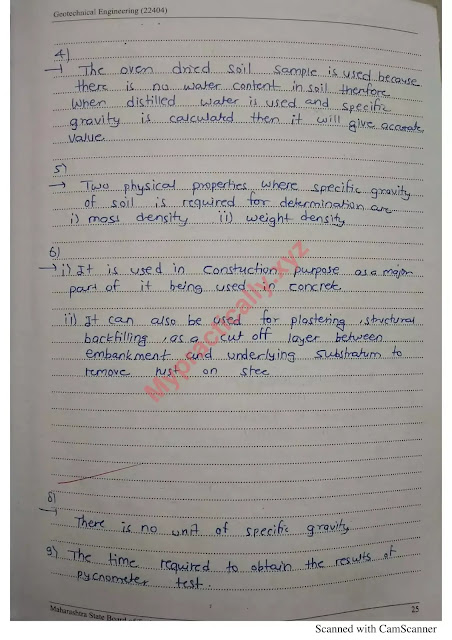 Geotechnical Engineering (22404)
4)
→ The oven dried soil sample is used because
there is no water content in soil therfore
when distilled water is used and specific
gravity is calculated then it will give accurate
value.
5)
→ Two physical properties where specific gravity
of soil is required for determination are
i) mass density ii) weight density
6)
→ i) It is used in constuction purpose as a major
part of it being used in concrete.
ii) It can also be used for plastering, structural
backfilling, as a cut off layer between
embankment and underlying substratum to
remove rust on stee
Mypractically.xyz
8)
→ There is no unit of specific gravity
9) The time required to obtain the results of
Pycnometer test.
Maharashtra State Board of
25
Scanned with CamScanner